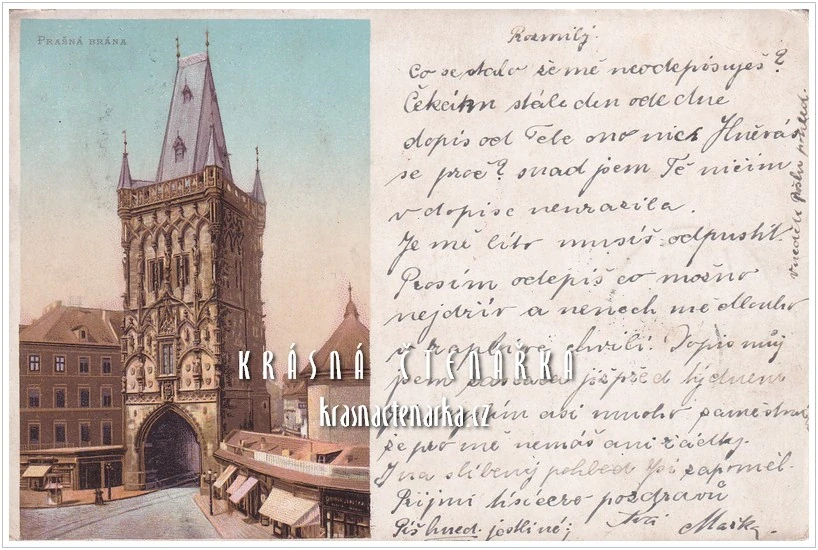 PRAŠNÁ BRÁNA
Rozmilý.
Co se stalo že mě neodepisuješ?
Čekám stále den ode dne
dopis od Tebe ono nic. Hněváš
se proč? snad jsem Tě ničím
v dopise neurazila.
Je mě líto musíš odpustit.
Prosím odepiš co možno
nejdřív a nenech mě dlouho
v chvíli. Dopis můj
jsem již před týdnem
asi mnoho
že pro mě nemáš ani řádky.
I na slíbený pohled jsi zapoměl.
Přijmi tisícero pozdravů
Piš hned. jedině;
v neděli pošlu pohled.
KRÁSNÁ ČTENÁŘKA
krasnactenarka.cz